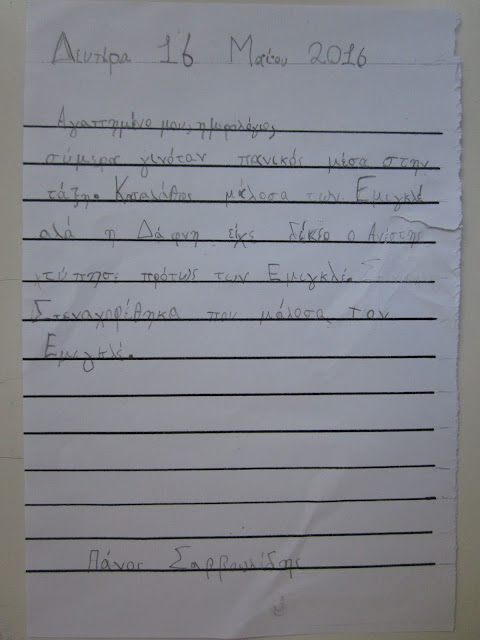 Δευτέρα 16 Μαΐου 2016
Αγαπημένο μου ημερολόγιο
σύμερα γινόταν πανικός μέσα στην
τάξη. Καταλάθος μάλοσα των Εμιγκλέ
αλά η Δάφνη είχε δίκεο ο Ανέστης
χτύπησε πρότως των Εμιγκλέ.
Στεναχορέθηκα που μάλοσα τον
Εμιγκλέ.
Πάνος